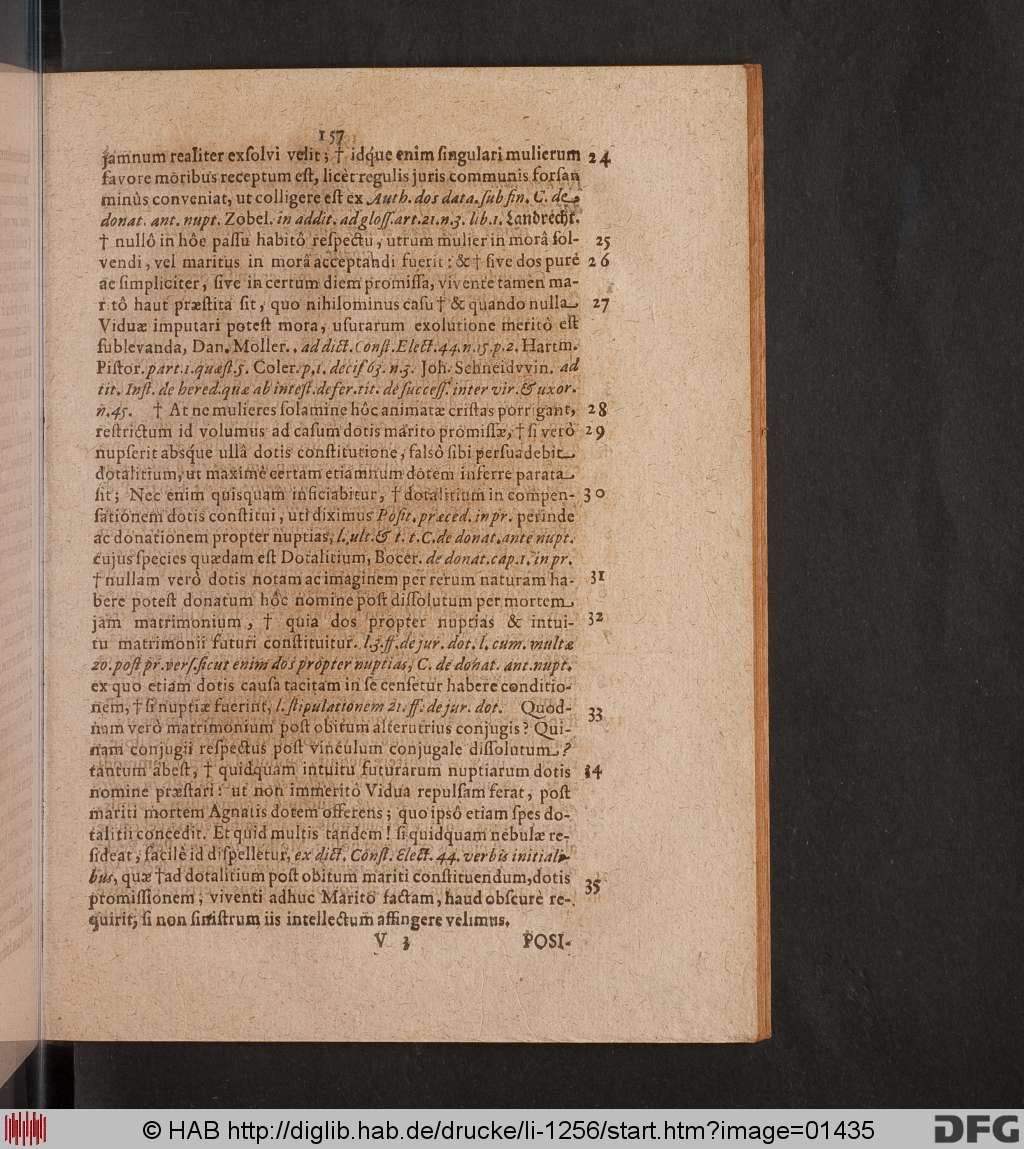 157
jamnum realiter exſolvi velit; † idq́ue enim ſingulari mulierum 24
favore moribus receptum eſt, licèt regulis juris communis forſan
minùs conveniat, ut colligere eſt ex Auth. dos data. ſub fin. C. de
donat. ant. nupt. Zobel. in addit. ad gloſſ. art. 21. n. 3. lib. 1. Landrecht.
† nullô in hôc paſſu habitô reſpectu, utrum mulier in morâ ſol- 25
vendi, vel maritus in morâ acceptandi fuerit: & † ſive dos purè 26
ac ſimpliciter, ſive in certum diem promiſſa, vivente tamen ma-
ritô haut præſtita ſit, quo nihilominus caſu † & quando nulla 27
Viduæ imputari poteſt mora, uſurarum exolutione meritò eſt
ſublevanda, Dan. Moller. ad dict. Conſt. Elect. 44. n. 15. p. 2. Hartm.
Piſtor. part. 1. quæſt. 5. Coler. p. 1. deciſ 63. n. 3. Joh. Schneidvvin. ad
tit. Inſt. de hered. quæ ab inteſt. defer. tit. de ſucceſſ. inter vir. & uxor.
n. 45. † At ne mulieres ſolamine hôc animatæ criſtas porrigant, 28
reſtrictum id volumus ad caſum dotis marito promiſſæ, † ſi verò 29
nupſerit absque ullâ dotis conſtitutione, falsò ſibi perſuadebit
dotalitium, ut maximè certam etiamnum dotem inferre parata
ſit; Nec enim quisquam inficiabitur, † dotalitium in compen- 30
ſationem dotis conſtitui, uti diximus Poſit. præced. in pr. perinde
ac donationem propter nuptias, l. ult. & t. t. C. de donat. ante nupt.
cujus ſpecies quædam eſt Dotalitium, Bocer. de donat. cap. 1. in pr.
† nullam verò dotis notam ac imaginem per rerum naturam ha- 31
bere poteſt donatum hôc nomine poſt diſſolutum per mortem
jam matrimonium, † quia dos propter nuptias & intui- 32
tu matrimonii futuri conſtituitur. l. 3. ff. de jur. dot. l. cum. multæ
20. poſt pr. verſ. ſicut enim dos propter nuptias, C. de donat. ant. nupt.
ex quo etiam dotis cauſa tacitam in ſe cenſetur habere conditio-
nem, † ſi nuptiæ fuerint, l. ſtipulationem 21. ff. de jur. dot. Quod- 33
nam verò matrimonium poſt obitum alterutrius conjugis? Qui-
nam conjugii reſpectus poſt vinculum conjugale diſſolutum?
tantum abeſt, † quidquam intuitu futurarum nuptiarum dotis 34
nomine præſtari: ut non immeritò Vidua repulſam ferat, poſt
mariti mortem Agnatis dotem offerens; quo ipsô etiam ſpes do-
talitii concedit. Et quid multis tandem! ſi quidquam nebulæ re-
ſideat, facilè id diſpelletur, ex dict. Conſt. Elect. 44. verbis initiali-
bus, quæ † ad dotalitium poſt obitum mariti conſtituendum, dotis 35
promiſſionem, viventi adhuc Marito factam, haud obſcurè re-
quirit, ſi non ſiniſtrum iis intellectum affingere velimus.
V 3 POSI-
© HAB http://diglib.hab.de/drucke/li-1256/start.htm?image=01435
DFG